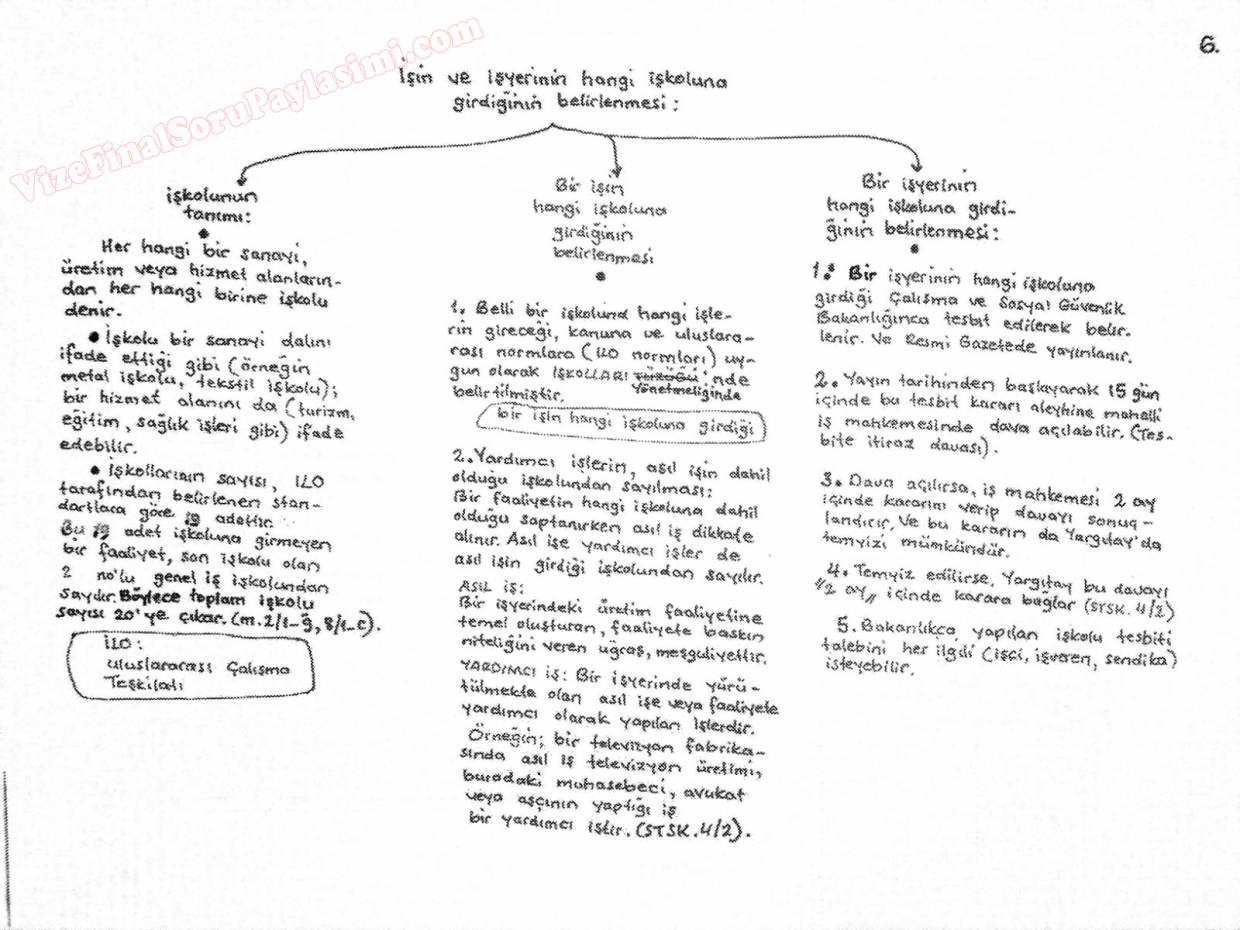 VizeFinalSoruPaylasimi.com
6.
İşin ve işyerinin hangi işkoluna
girdiğinin belirlenmesi:
işkolunun
tanımı:
Her hangi bir sanayi,
üretim veya hizmet alanların-
dan her hangi birine işkolu
denir.
• İşkolu bir sanayi dalını
ifade ettiği gibi (örneğin
metal işkolu, tekstil işkolu);
bir hizmet alanını da (turizm,
eğitim, sağlık işleri gibi) ifade
edebilir.
• İşkollarının sayısı, ILO
tarafından belirlenen stan-
dartlara göre 19 adettir.
Bu 19 adet işkoluna girmeyen
bir faaliyet, son işkolu olan
2 no'lu genel iş işkolundan
sayılır. Böylece toplam işkolu
sayısı 20'ye çıkar. (m.2/1-ğ, 8/1-c).
İLO:
uluslararası Çalışma
Teşkilatı
Bir işin
hangi işkoluna
girdiğinin
belirlenmesi
1. Belli bir işkoluna hangi işle-
rin gireceği, kanuna ve uluslara-
rası normlara (ILO normları) uy-
gun olarak İŞKOLLARI TÜZÜĞÜ'nde
Yönetmeliğinde
belirtilmiştir.
bir işin hangi işkoluna girdiği
2. Yardımcı işlerin, asıl işin dahil
olduğu işkolundan sayılması:
Bir faaliyetin hangi işkoluna dahil
olduğu saptanırken asıl iş dikkate
alınır. Asıl işe yardımcı işler de
asıl işin girdiği işkolundan sayılır.
ASIL İŞ:
Bir işyerindeki üretim faaliyetine
temel oluşturan, faaliyete baskın
niteliğini veren uğraş, meşguliyettir.
YARDIMCI İŞ: Bir işyerinde yürü-
tülmekte olan asıl işe veya faaliyete
yardımcı olarak yapılan işlerdir.
Örneğin; bir televizyon fabrika-
sında asıl iş televizyon üretimi,
buradaki muhasebeci, avukat
veya aşçının yaptığı iş
bir yardımcı iştir. (STSK. 4/2).
Bir işyerinin
hangi işkoluna girdi-
ğinin belirlenmesi:
1. Bir işyerinin hangi işkoluna
girdiği Çalışma ve Sosyal Güvenlik
Bakanlığınca tesbit edilerek belir-
lenir. Ve Resmi Gazetede yayınlanır.
2. Yayın tarihinden başlayarak 15 gün
içinde bu tesbit kararı aleyhine mahalli
iş mahkemesinde dava açılabilir. (Tes-
bite itiraz davası).
3. Dava açılırsa, iş mahkemesi 2 ay
içinde kararını verip davayı sonuç-
landırır, Ve bu kararın da Yargıtay'da
temyizi mümkündür.
4. Temyiz edilirse, Yargıtay bu davayı
"2 ay" içinde karara bağlar (STSK. 4/2)
5. Bakanlıkça yapılan işkolu tesbiti
talebini her ilgili (işçi, işveren, sendika)
isteyebilir.